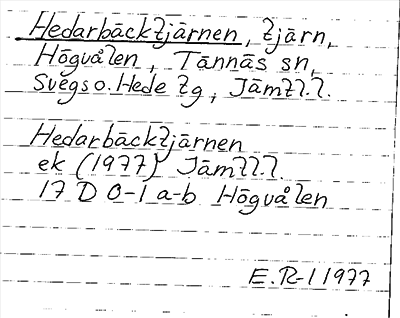 Hedarbäcktjärnen, tjärn,
Högvålen, Tännäs sn,
Svegs o. Hede tg, Jämtl.l.
Hedarbäcktjärnen
ek (1977) Jämtl.l.
17 D 0-1 a-b Högvålen
E.R-l 1977